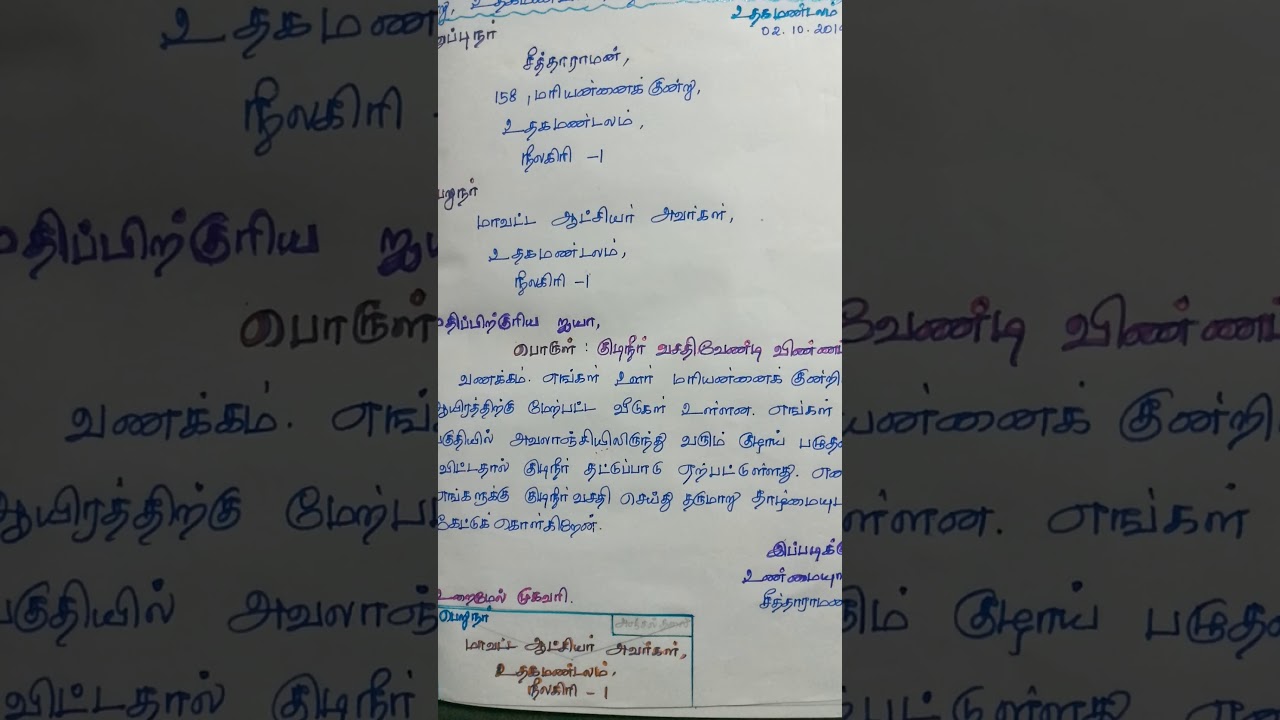 உதகமண்டலம்
02.10.2019
சீத்தாராமன்,
158, மரியன்னைக் குன்று,
உதகமண்டலம்,
நீலகிரி -1
மாவட்ட ஆட்சியர் அவர்கள்,
உதகமண்டலம்,
நீலகிரி -1
மதிப்பிற்குரிய ஐயா,
பொருள் : குடிநீர் வசதிவேண்டி விண்ணப்
வணக்கம். எங்கள் ஊர் மரியன்னைக் குன்றி
ஆயிரத்திற்கு மேற்பட்ட வீடுகள் உள்ளன. எங்கள்
பகுதியில் அவலாஞ்சியிலிருந்து வரும் குழாய் பழுத
விட்டதால் குடிநீர் தட்டுப்பாடு ஏற்பட்டுள்ளது. என
எங்களுக்கு குடிநீர் வசதி செய்து தருமாறு தாழ்மையுட
கேட்டுக் கொள்கிறேன்.
இப்படிக்கு
உண்மையு
சீத்தாராமன்
உறைமேல் முகவரி.
பெறுநர்
மாவட்ட ஆட்சியர் அவர்கள்,
உதகமண்டலம்,
நீலகிரி - 1